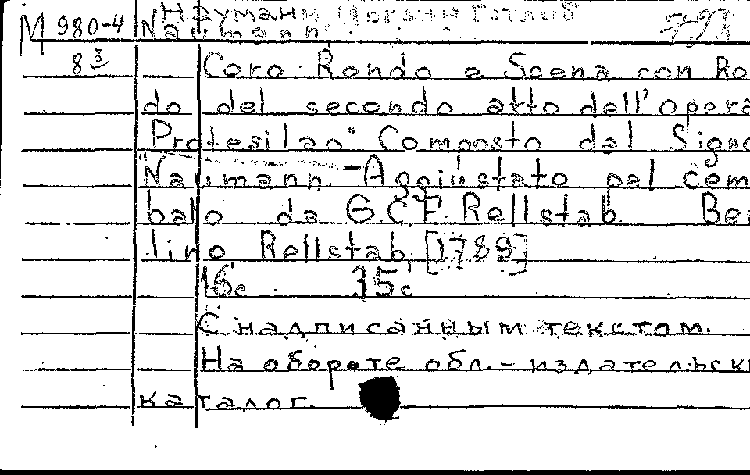 Науманн, Иоганн Готлиб
М 980-4 Naumann, 793
8 3/ Coro. Rondo e Scena con Ro
do del secondo atto dell'opera
"Protesilao" Composto dal Signo
Naumann - Aggiustato pel cem
balo da G.C.F. Rellstab. Ber
lino Rellstab, [1789]
16 с. 35 с.
С надписанным текстом.
На обороте обл. - издательск
каталог.